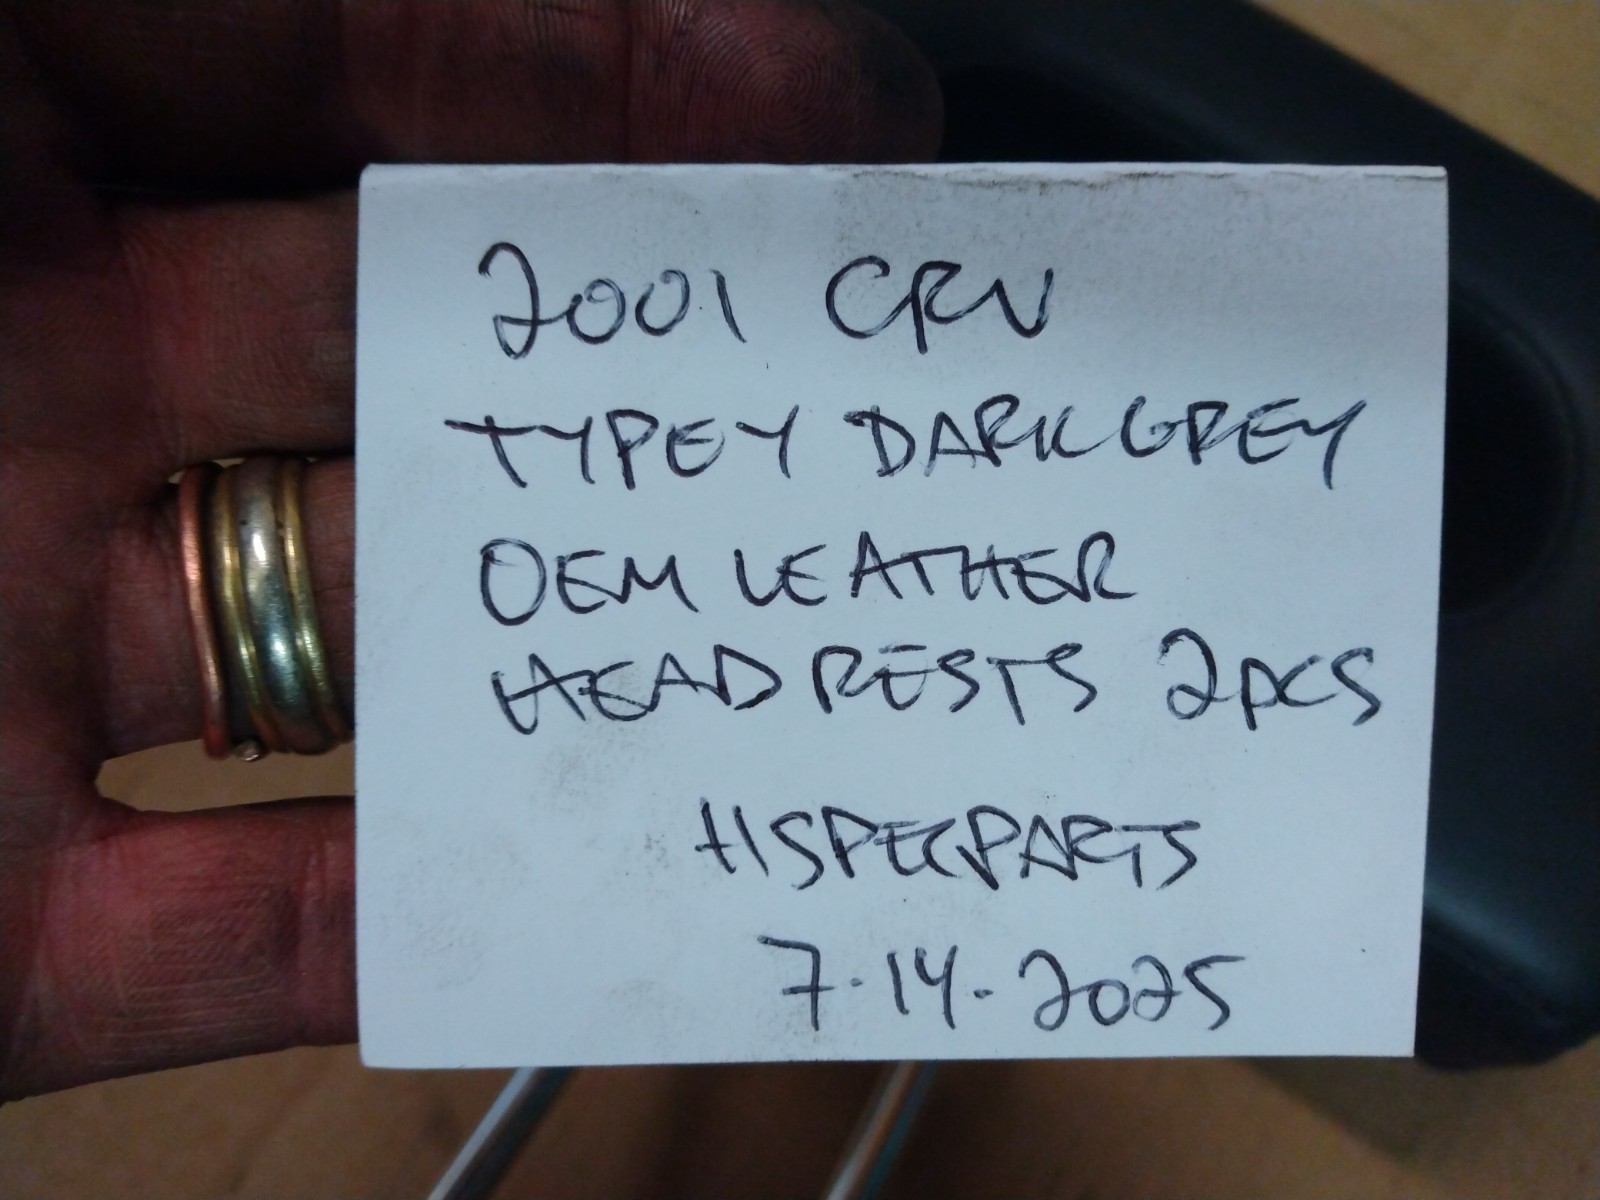 2001 CRV
TYPE Y DARK GREY
OEM LEATHER
HEAD RESTS 2PCS
HSPECPARTS
7.14.2025